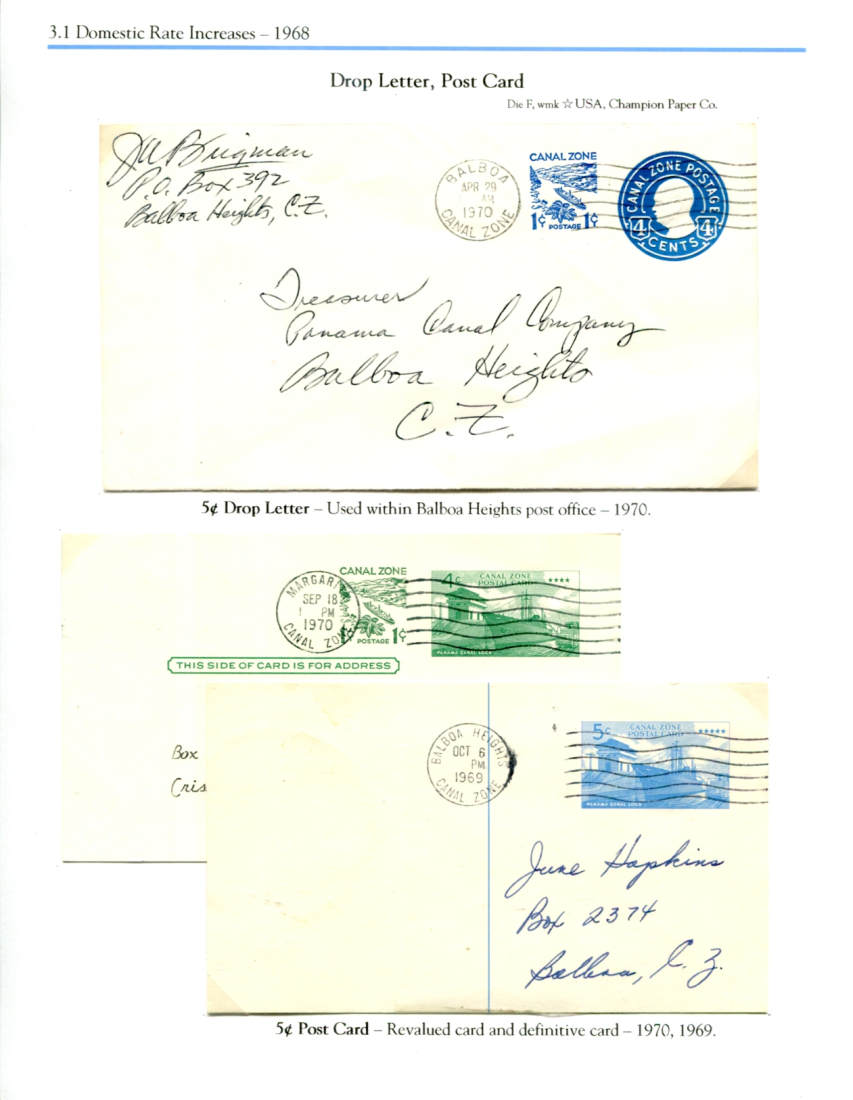 3.1 Domestic Rate Increases – 1968
Drop Letter, Post Card
Die F, wmk ☆ USA, Champion Paper Co.
JW Brigman
P.O. Box 392
Balboa Heights, C.Z.
BALBOA
APR 29
AM
1970
CANAL ZONE
CANAL ZONE
1¢ POSTAGE 1¢
CANAL ZONE POSTAGE
4 4
CENTS
Treasurer
Panama Canal Company
Balboa Heights
C.Z.
5¢ Drop Letter – Used within Balboa Heights post office – 1970.
MARGAR
SEP 18
1 PM
1970
CANAL ZO
CANAL ZONE
POSTAGE 1¢
4c CANAL ZONE ★★★★
POSTAL CARD
PANAMA CANAL LOCK
THIS SIDE OF CARD IS FOR ADDRESS
Box
Cris
BALBOA HEIGHTS
OCT 6
PM
1969
CANAL ZONE
5c CANAL ZONE ★★★★★
POSTAL CARD
PANAMA CANAL LOCK
June Hopkins
Box 2374
Balboa, C.Z.
5¢ Post Card – Revalued card and definitive card – 1970, 1969.